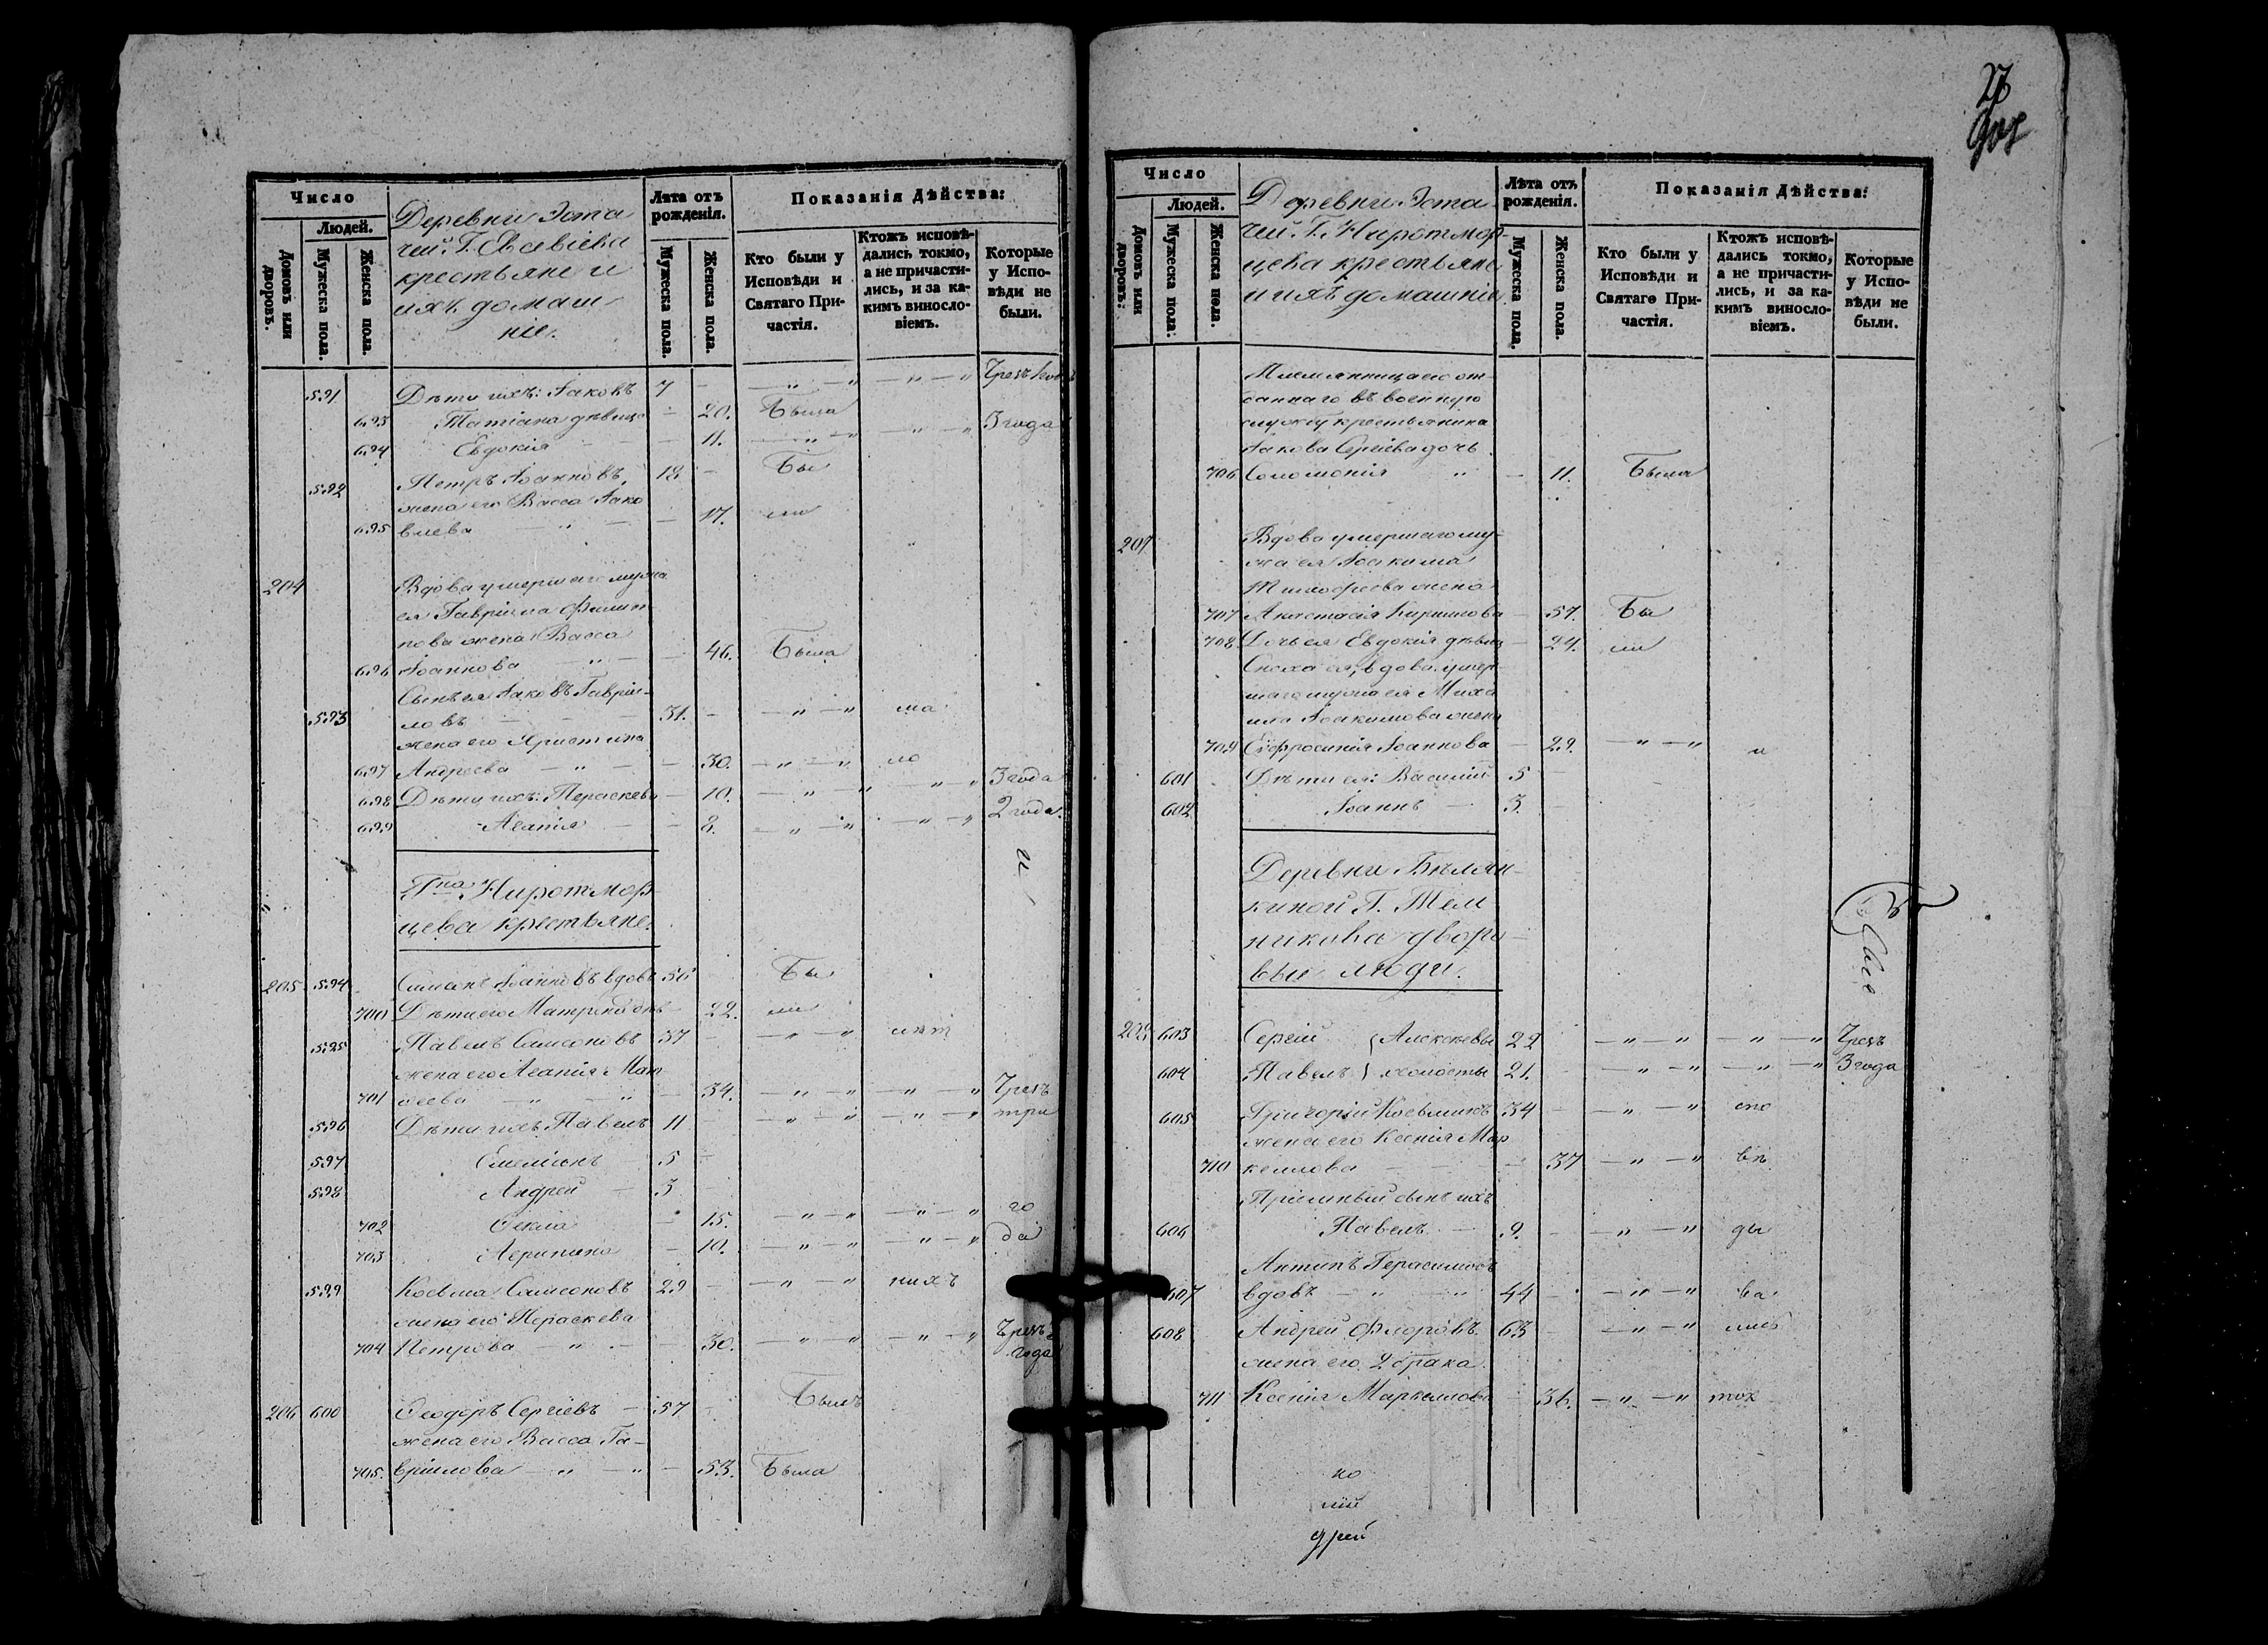 Число
Людей.
Домовъ или дворовъ.
Мужеска пола.
Женска пола.
Деревни Эста
чей Г. Евсевіева
крестьяне и
ихъ домаш-
ніе.
Лѣта отъ рожденія.
Мужеска пола.
Женска пола.
Показанія Дѣйства:
Кто были у Исповѣди и Святаго Причастія.
Ктожъ исповѣдались токмо, а не причастились, и за какимъ винословіемъ.
Которые у Исповѣди не были.
591 Дѣти ихъ: Іаковъ 7 - — „ — „ — „ — „
693 Татіана дѣвица - 20. Была
694 Евдокія - 11. — „ — „ — „ — „ 3 года
592 Петръ Іоанновъ, 18 - Бы
жена его Васса Іако
695 влева — „ — - 17. ли
204 Вдова умершаго мужа
ея Гавріила Филип
пова жена Васса
696 Іоаннова — „ — - 46. Была
Сынъ ея Іаковъ Гаврій-
593 ловъ - - 31. - — „ — „
жена его Христина
697 Андреева — „ — - 30. — „ — „
698 Дѣти ихъ: Параскева - 10. — „ — „ „ — „ 3 года
699 Агапія - - 8. — „ — „ — „ — „ 2 года.
и
Гна Ниротмор-
цева крестьяне.
205 594 Симеонъ Іоанновъ вдовъ 56 Бы
700 Дѣти его Матрона дѣв - 22. ли
595 Павелъ Симеоновъ 37 - — „ — „
жена его Агапія Мат
701 ѳеева — „ — „ - 34. — „ — „ — „ — „ Чрезъ
596 Дѣти ихъ Павелъ 11 - — „ — „ — „ — „ три
597 Емеліанъ 5 -
598 Андрей - 3 -
702 Ѳекла - 15. — „ — „ — „ — „ го
703 Агрипина - 10. — „ — „ — „ — „ да
599 Косьма Симеоновъ 29 - — „ — „ нихъ
жена его Параскева
704 Петрова — „ — - 30. — „ — „ — „ — „ Чрезъ 2
года
206 600 Ѳеодоръ Сергіевъ - 57 - Былъ
жена его Васса Га-
705. вріилова — „ — „ - 53. Была
Число
Людей.
Домовъ или дворовъ:
Мужеска пола:
Женска пола.
Деревни Эста
чей Г. Ниротмор-
цева крестьяне
и ихъ домашніе.
Лѣта отъ рожденія.
Мужеска пола.
Женска пола.
Показанія Дѣйства:
Кто были у Исповѣди и Святаго Причастія.
Ктожъ исповѣдались токмо, а не причастились, и за какимъ винословіемъ.
Которые у Исповѣди не были.
Племянница его от-
даннаго въ военную
службу крестьянина
Іакова Сергіева дочь
706 Соломонія „ - 11. Была
207 Вдова умершаго му-
жа ея Іоакима
Тимоѳеева жена
707 Анастасія Кирилова - 57. Бы
708 Дочь ея Евдокія дѣвица - 24. ли
Сноха ея, вдова умер-
шаго мужа ея Миха
ила Іоакимова жена
709 Евфросинія Іоаннова - 29. — „ — „ и
601 Дѣти ея: Василій 5 -
602 Іоаннъ - 3. -
Деревни Бѣлян-
киной Г. Тем
никова дворо-
выя люди.
208 603 Сергій { Алексѣевы 22 - — „ — „ — „ — „ Чрезъ
604 Павелъ } холосты 21. - — „ — „ — „ — „ 3 года
605 Григорій Косьминъ 34 - — „ — „
жена его Ксенія Мар
710 келлова - - 37 — „ — „
Пріемный сынъ ихъ
606 Павелъ - 9. - — „ — „
Антипъ Герасимовъ
607 вдовъ — „ — „ 44 - — „ — „
608 Андрей Флоровъ 63 - — „ — „
жена его 2 брака
711 Ксенія Маркеллова - 36. — „ — „
ко
лій
дрей